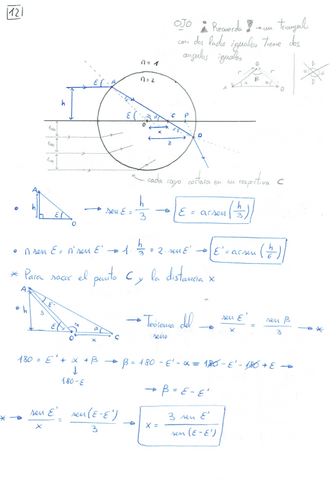 12
OJO ¡Recuerda! → un triangul
con dos lados iguales tiene dos
angulos iguales
n = 1
n = 2
A
h
E
C
P
x
cada rayo cortara en su respectivo C
• A h E O → sen E = h/3 → E = arcsen (h/3)
• n sen E = n' sen E' → 1 h/3 = 2 sen E' → E' = arcsen (h/6)
* Para sacar el punto C y la distancia x
A E' 3 h E O x C
→ Teorema del seno → sen E'/x = sen β/3 → *
180 = E' + α + β → β = 180 - E' - α = 180 - E' - 180 + E →
180-E
→ β = E - E'
* → sen E'/x = sen(E-E')/3 → x = 3 sen E'/sen(E-E')